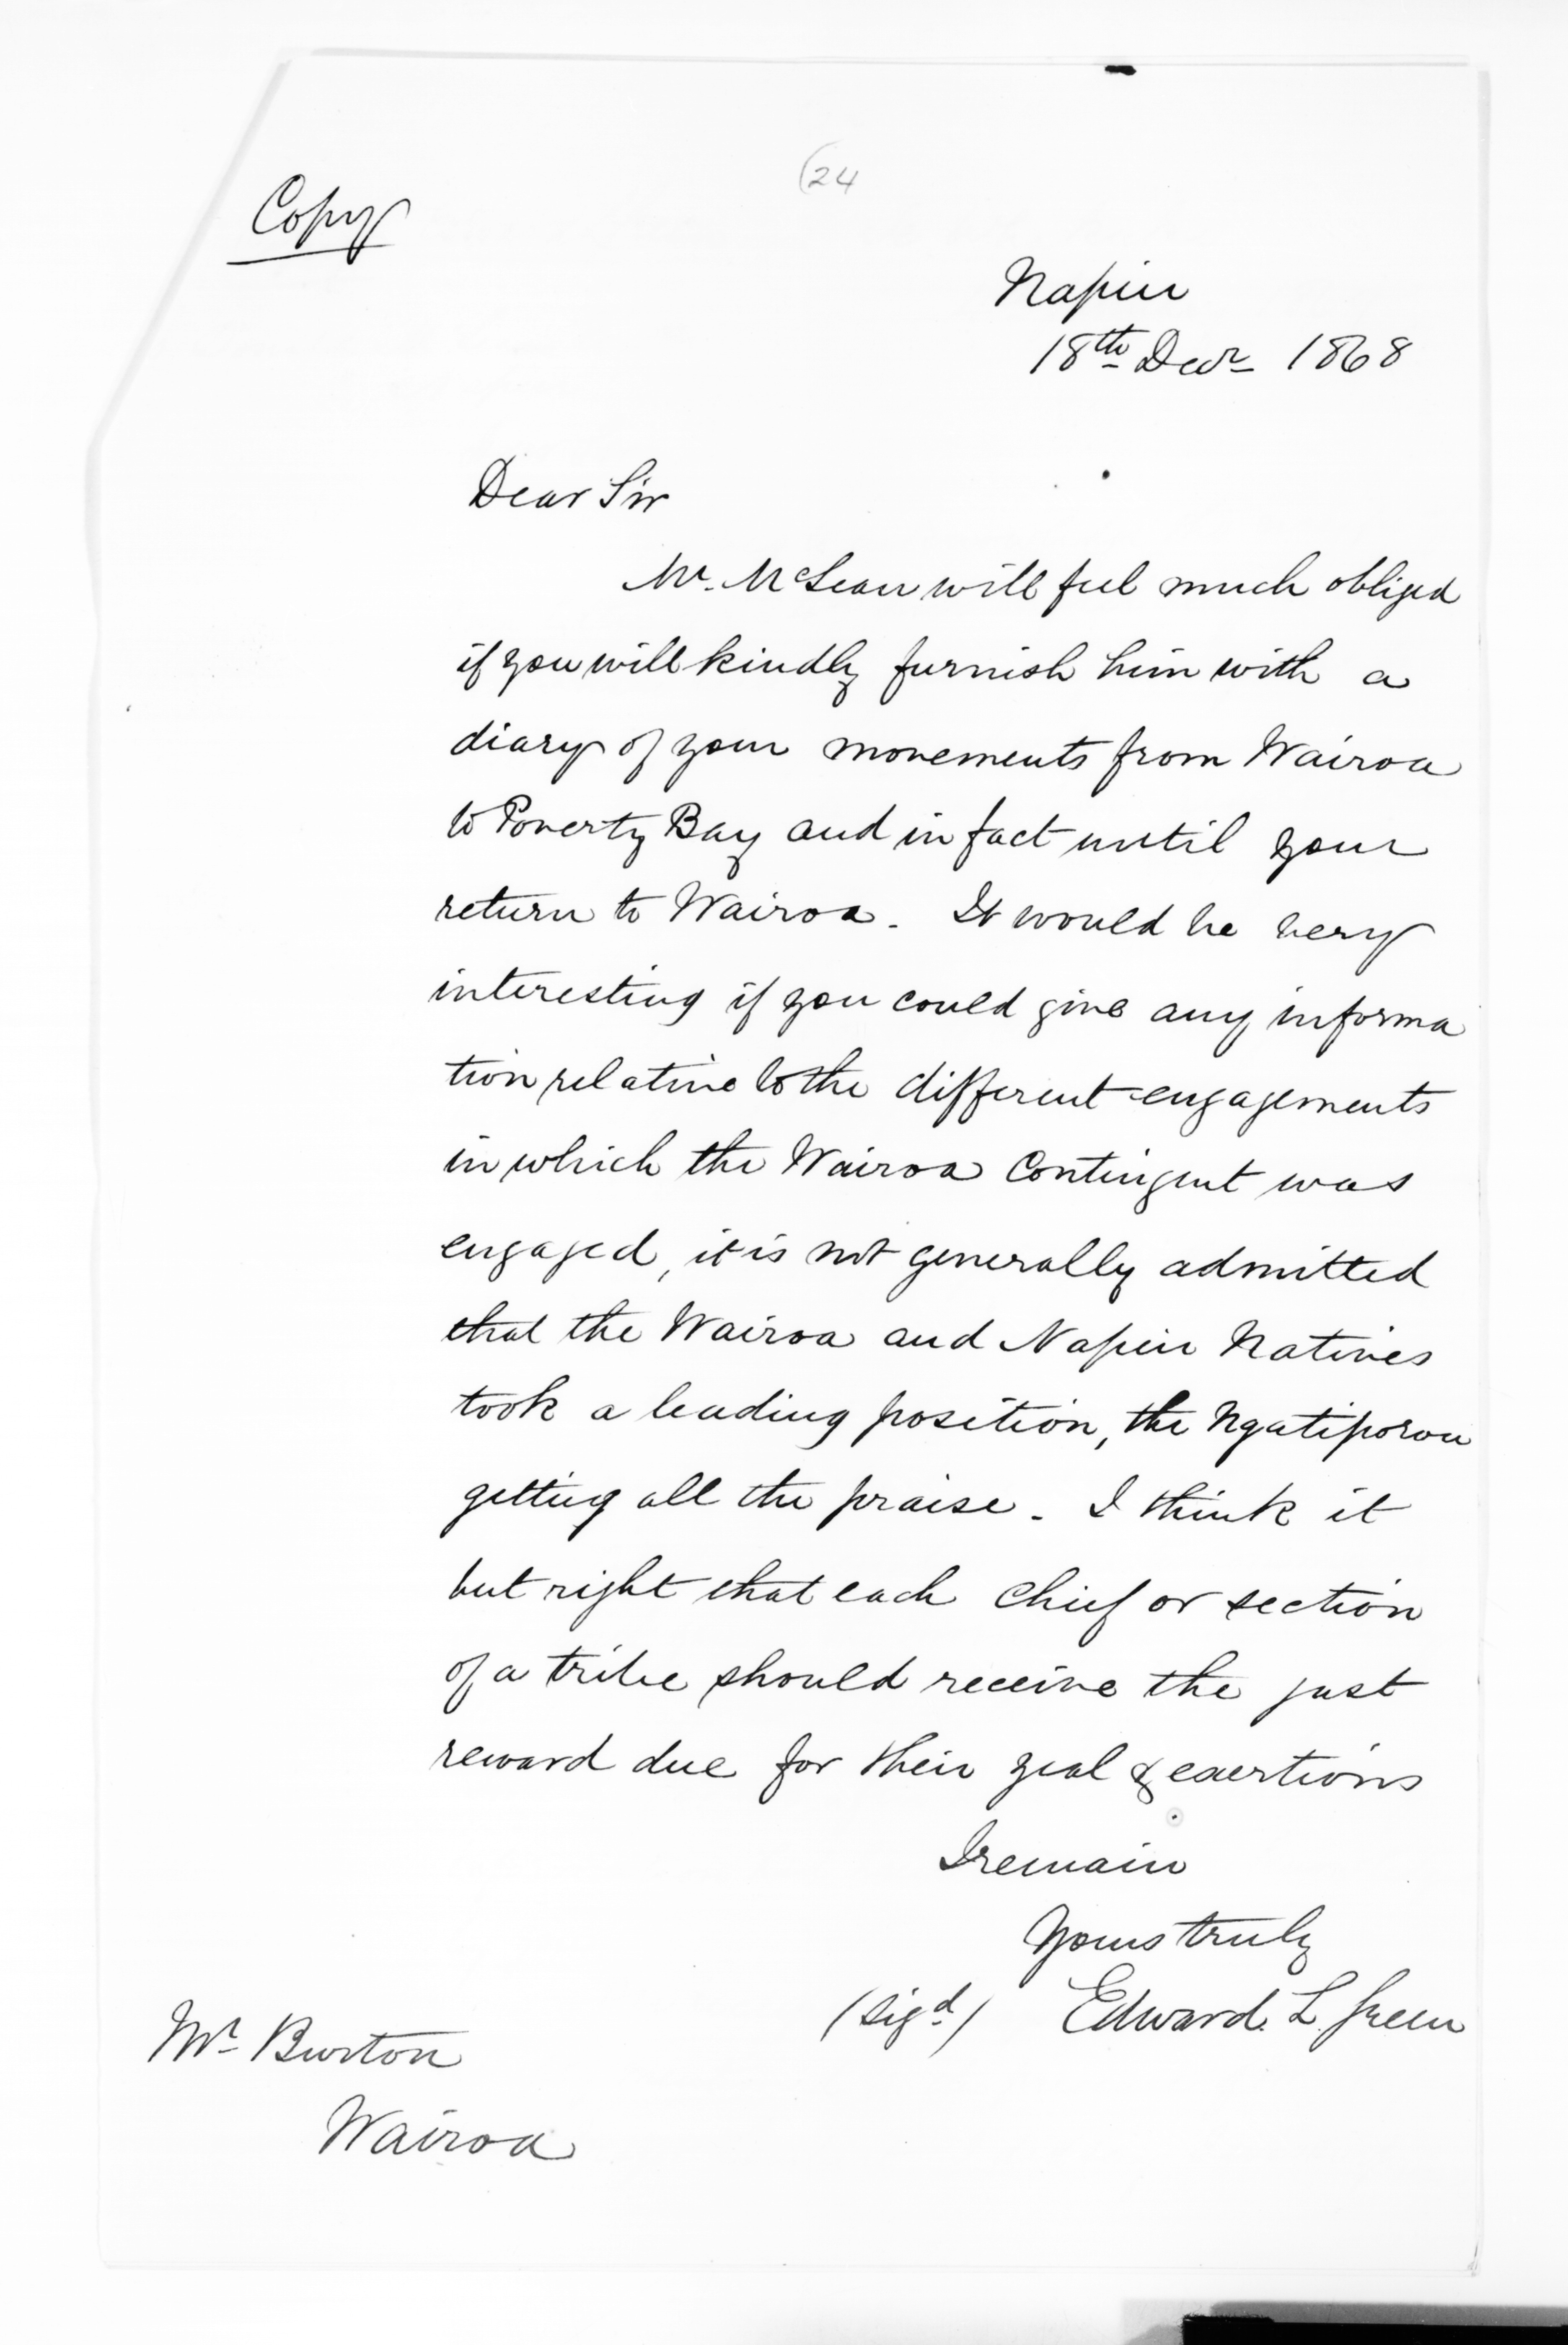 (24
Copy
Napier
18th Decr 1868
Dear Sir
Mr. McLean will feel much obliged
if you will kindly furnish him with a
diary of your movements from Wairoa
to Poverty Bay and in fact until your
return to Wairoa. It would be very
interesting if you could give any informa
tion relative to the different engagements
in which the Wairoa Contingent was
engaged, it is not generally admitted
that the Wairoa and Napier Natives
took a leading position, the Ngatiporou
getting all the praise. I think it
but right that each Chief or section
of a tribe should receive the just
reward due for their zeal & exertions
I remain
Yours truly
(sigd) Edward. L. Green
Mr Burton
Wairoa